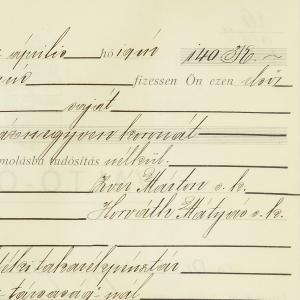 április hó 1911 140 K.
fizessen Ön ezen első
saját
száznegyven koronát
molásba tudósítás nélkül.
Zver Márton s. k.
Horváth Mátyás s. k.
vidéki takarékpénztár
társaság-nál